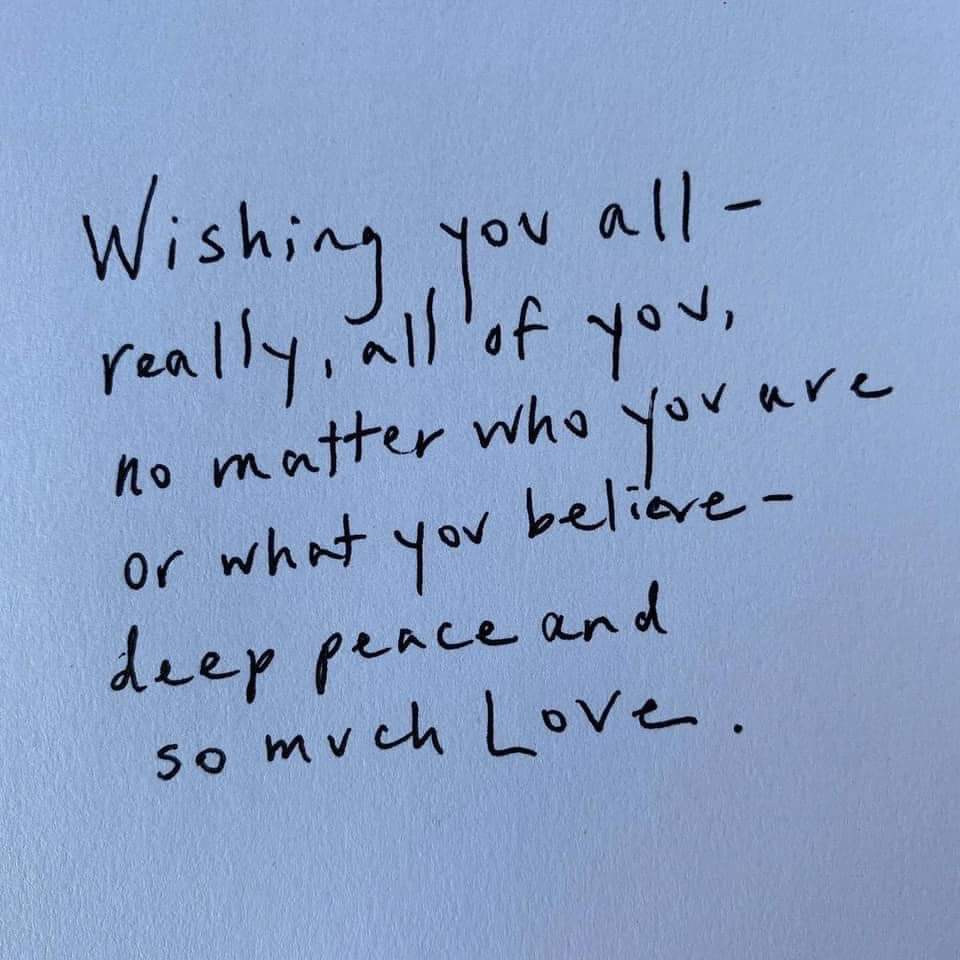 Wishing you all -
really, all of you,
no matter who you are
or what you believe -
deep peace and
so much Love.